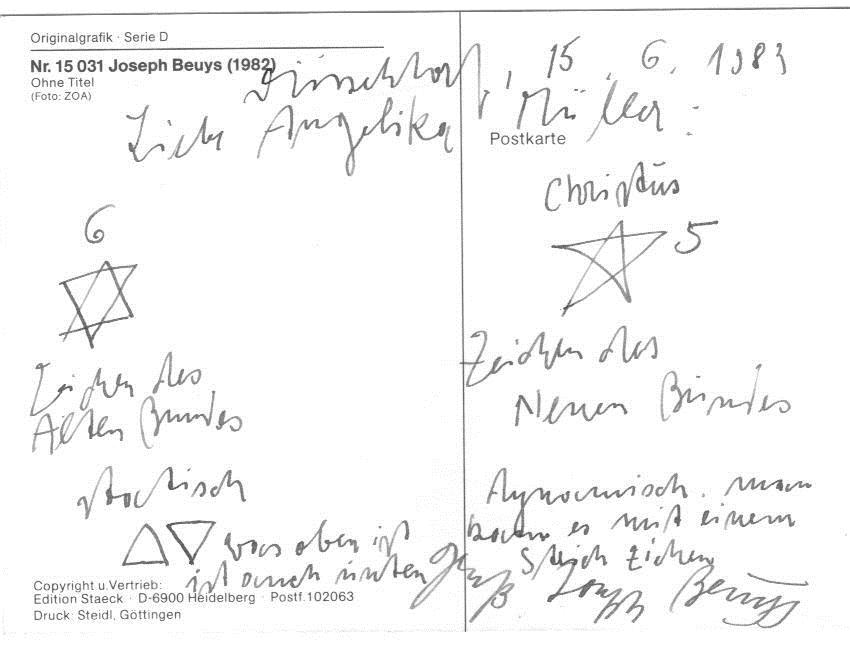 Originalgrafik · Serie D
Nr. 15 031 Joseph Beuys (1982)
Ohne Titel
(Foto: ZOA)
Düsseldorf, 15. 6. 1983
Liebe Angelika Müller:
Postkarte
6
Zeichen des
Alten Bundes
statisch
was oben ist
ist auch unten
Copyright u. Vertrieb:
Edition Staeck · D-6900 Heidelberg · Postf. 102063
Druck: Steidl, Göttingen
Christus
5
Zeichen des
Neuen Bundes
dynamisch. man
kann es mit einem
Strich ziehen
Gruß Joseph Beuys